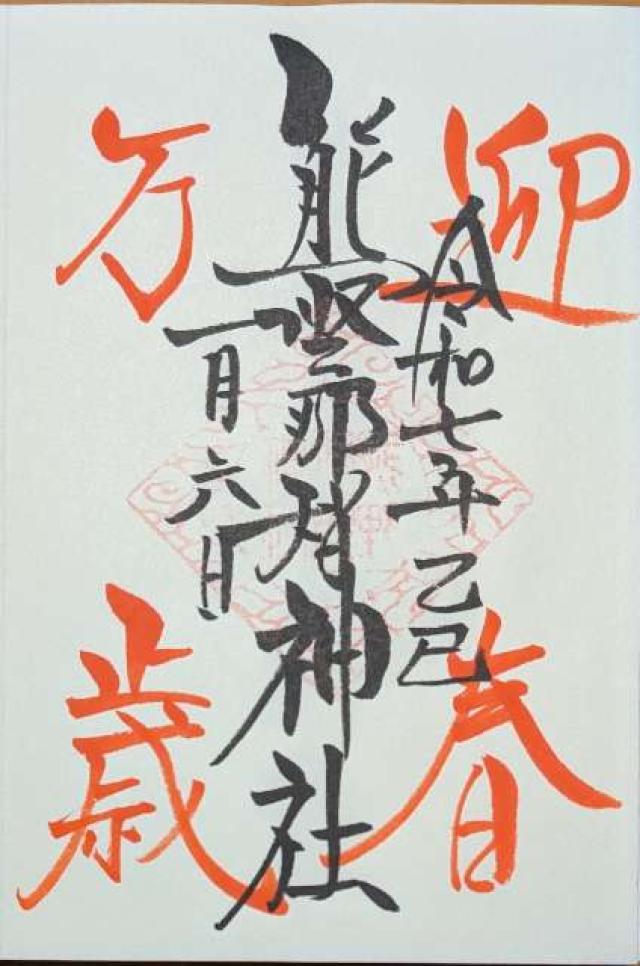 迎春
令和七年乙巳
熊野那智神社
一月六日
万歳